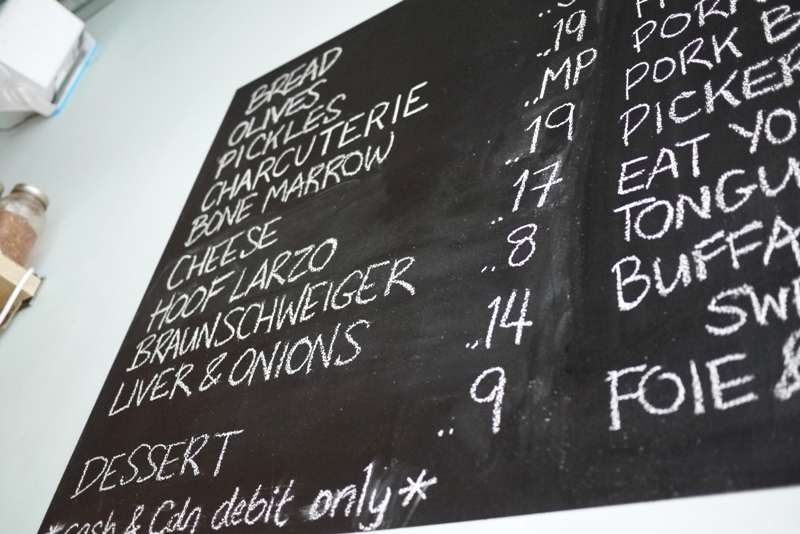 BREAD
OLIVES
PICKLES
CHARCUTERIE
BONE MARROW
CHEESE
HOOF LARZO
BRAUNSCHWEIGER
LIVER & ONIONS
DESSERT
*cash & Cdn debit only*
..19
..MP
..19
..17
..8
..14
..9
PORK B
PICKER
EAT YO
TONGU
BUFFA
SWE
FOIE &